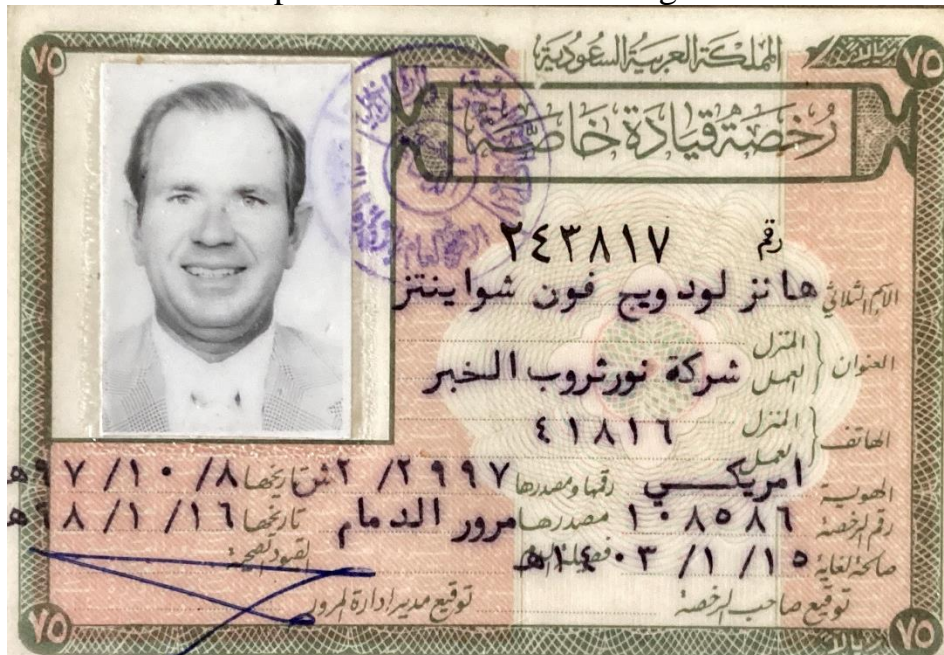 ٧٥ المملكة العربية السعودية ريالات ٧٥
رخصة قيادة خاصة
رقم ٢٤٣٨١٧
الاسم الثلاثي هانز لودويج فون شواينتز
العنوان { المنزل
العمل شركة نورثروب الخبر
الهاتف { المنزل ٤١٨١٦
العمل
الهوية امريكي رقمها ومصدرها ٢/٢٩٩٧ ش تاريخها ٩٧/١٠/٨ هـ
رقم الرخصة ١٠٨٥٨٦ مصدرها مرور الدمام تاريخها ٩٨/١/١٦ هـ
صالحة لغاية ١٤٠٣/١/١٥ هـ فصيلة الدم القيود الصحية
توقيع صاحب الرخصة توقيع مدير ادارة المرور
٧٥ ريالات ٧٥